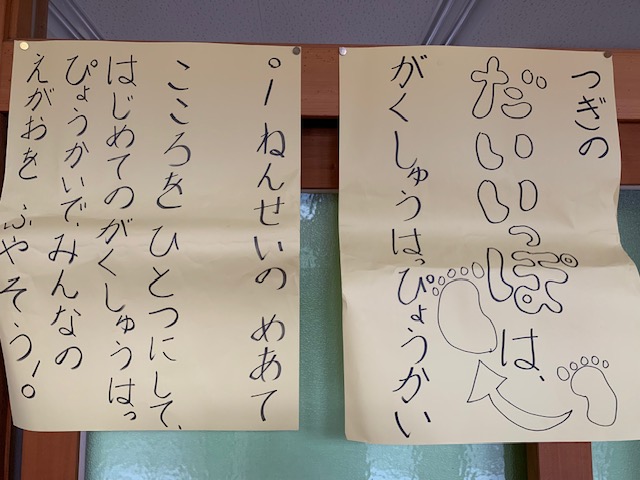 つぎの
だいいっぽは、
がくしゅうはっぴょうかい
○1ねんせいの めあて
こころを ひとつにして、
はじめてのがくしゅうはっ
ぴょうかいで、みんなの
えがおを ふやそう!。